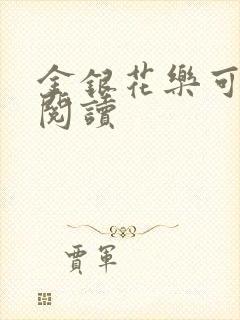 金銀花樂可
閱讀
賈軍